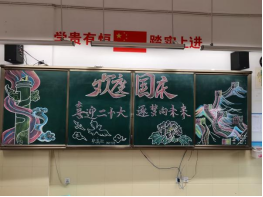 学贵有恒 踏实上进
欢庆国庆
喜迎二十大 逐梦向未来